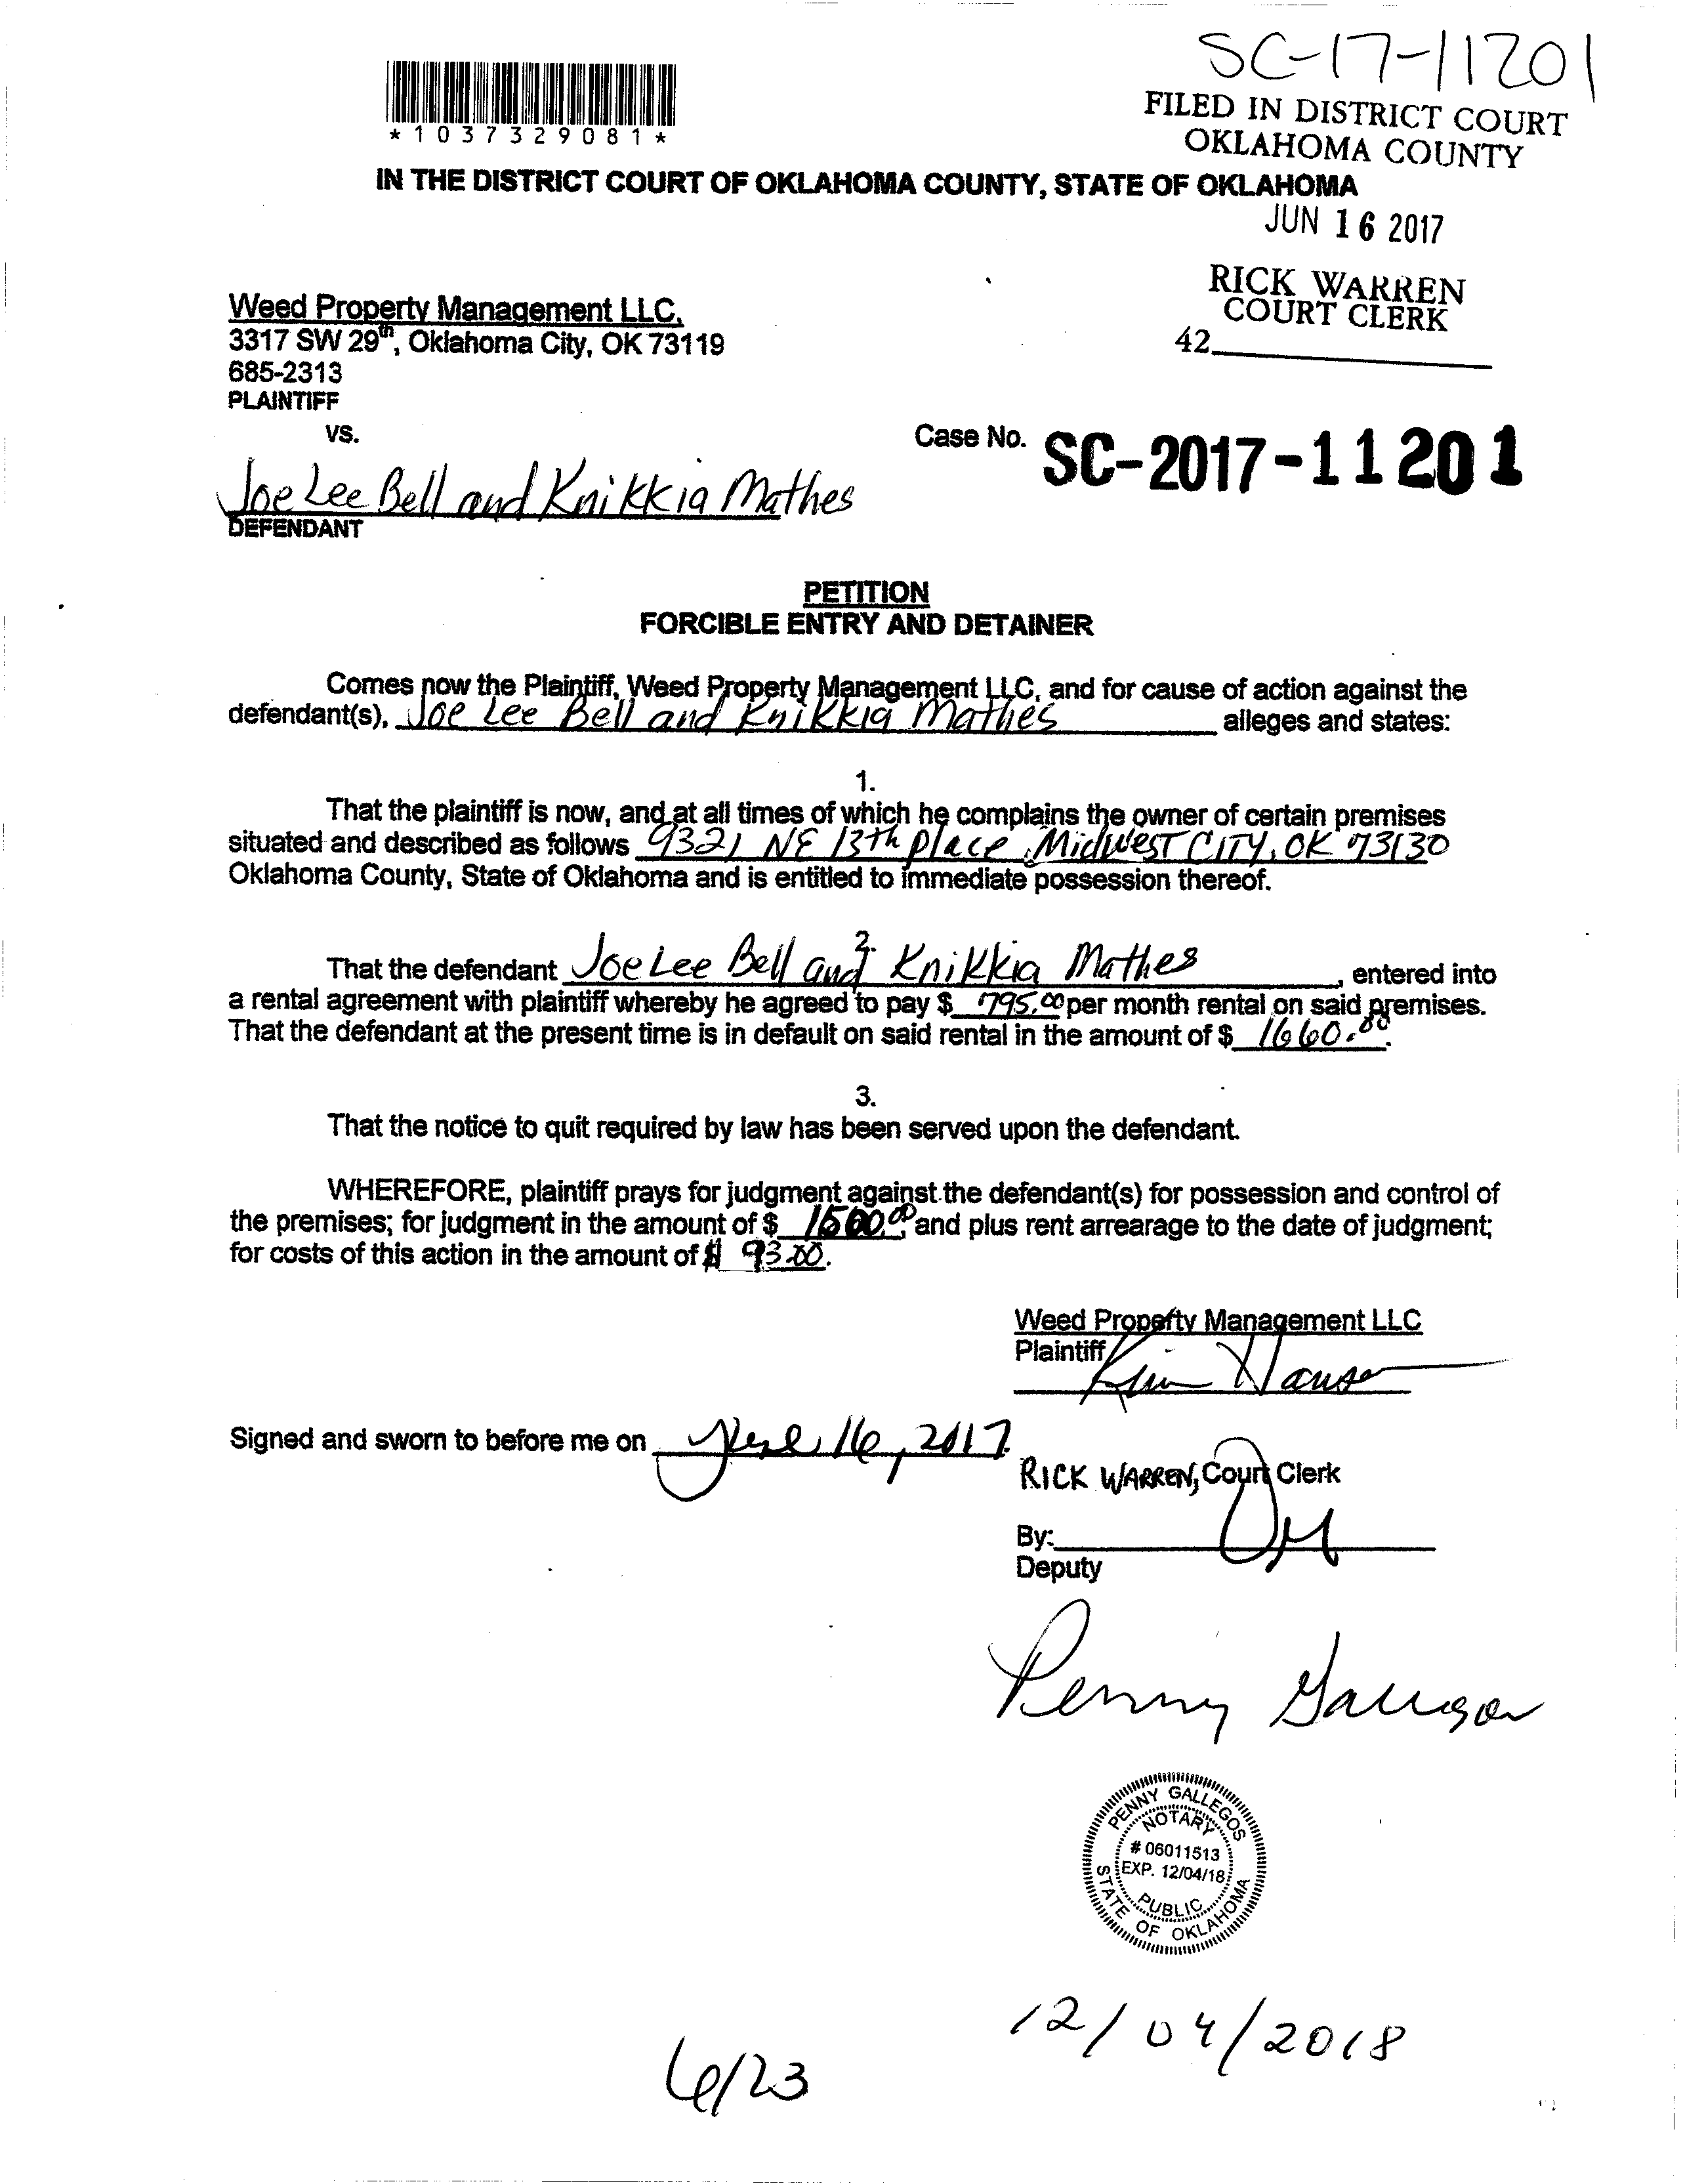 SC-17-11201
*1037329081*
FILED IN DISTRICT COURT
OKLAHOMA COUNTY
IN THE DISTRICT COURT OF OKLAHOMA COUNTY, STATE OF OKLAHOMA
JUN 16 2017
RICK WARREN
COURT CLERK
42
Weed Property Management LLC,
3317 SW 29th, Oklahoma City, OK 73119
685-2313
PLAINTIFF
VS.
Case No. SC-2017-11201
Joe Lee Bell and Knikkia Mathes
DEFENDANT
PETITION
FORCIBLE ENTRY AND DETAINER
Comes now the Plaintiff, Weed Property Management LLC, and for cause of action against the
defendant(s), Joe Lee Bell and Knikkia Mathes alleges and states:
1.
That the plaintiff is now, and at all times of which he complains the owner of certain premises
situated and described as follows 9321 NE 13th Place, Midwest City, OK 73130
Oklahoma County, State of Oklahoma and is entitled to immediate possession thereof.
2.
That the defendant Joe Lee Bell and Knikkia Mathes, entered into
a rental agreement with plaintiff whereby he agreed to pay $ 795.00 per month rental on said premises.
That the defendant at the present time is in default on said rental in the amount of $ 1660.00.
3.
That the notice to quit required by law has been served upon the defendant.
WHEREFORE, plaintiff prays for judgment against the defendant(s) for possession and control of
the premises; for judgment in the amount of $ 1500.00, and plus rent arrearage to the date of judgment;
for costs of this action in the amount of $ 93.00.
Weed Property Management LLC
Plaintiff
Signed and sworn to before me on June 16, 2017
RICK WARREN, Court Clerk
By:
Deputy
Penny Gallegos
PENNY GALLEGOS
NOTARY
# 06011513
EXP. 12/04/18
PUBLIC
STATE OF OKLAHOMA
12/04/2018
6/23